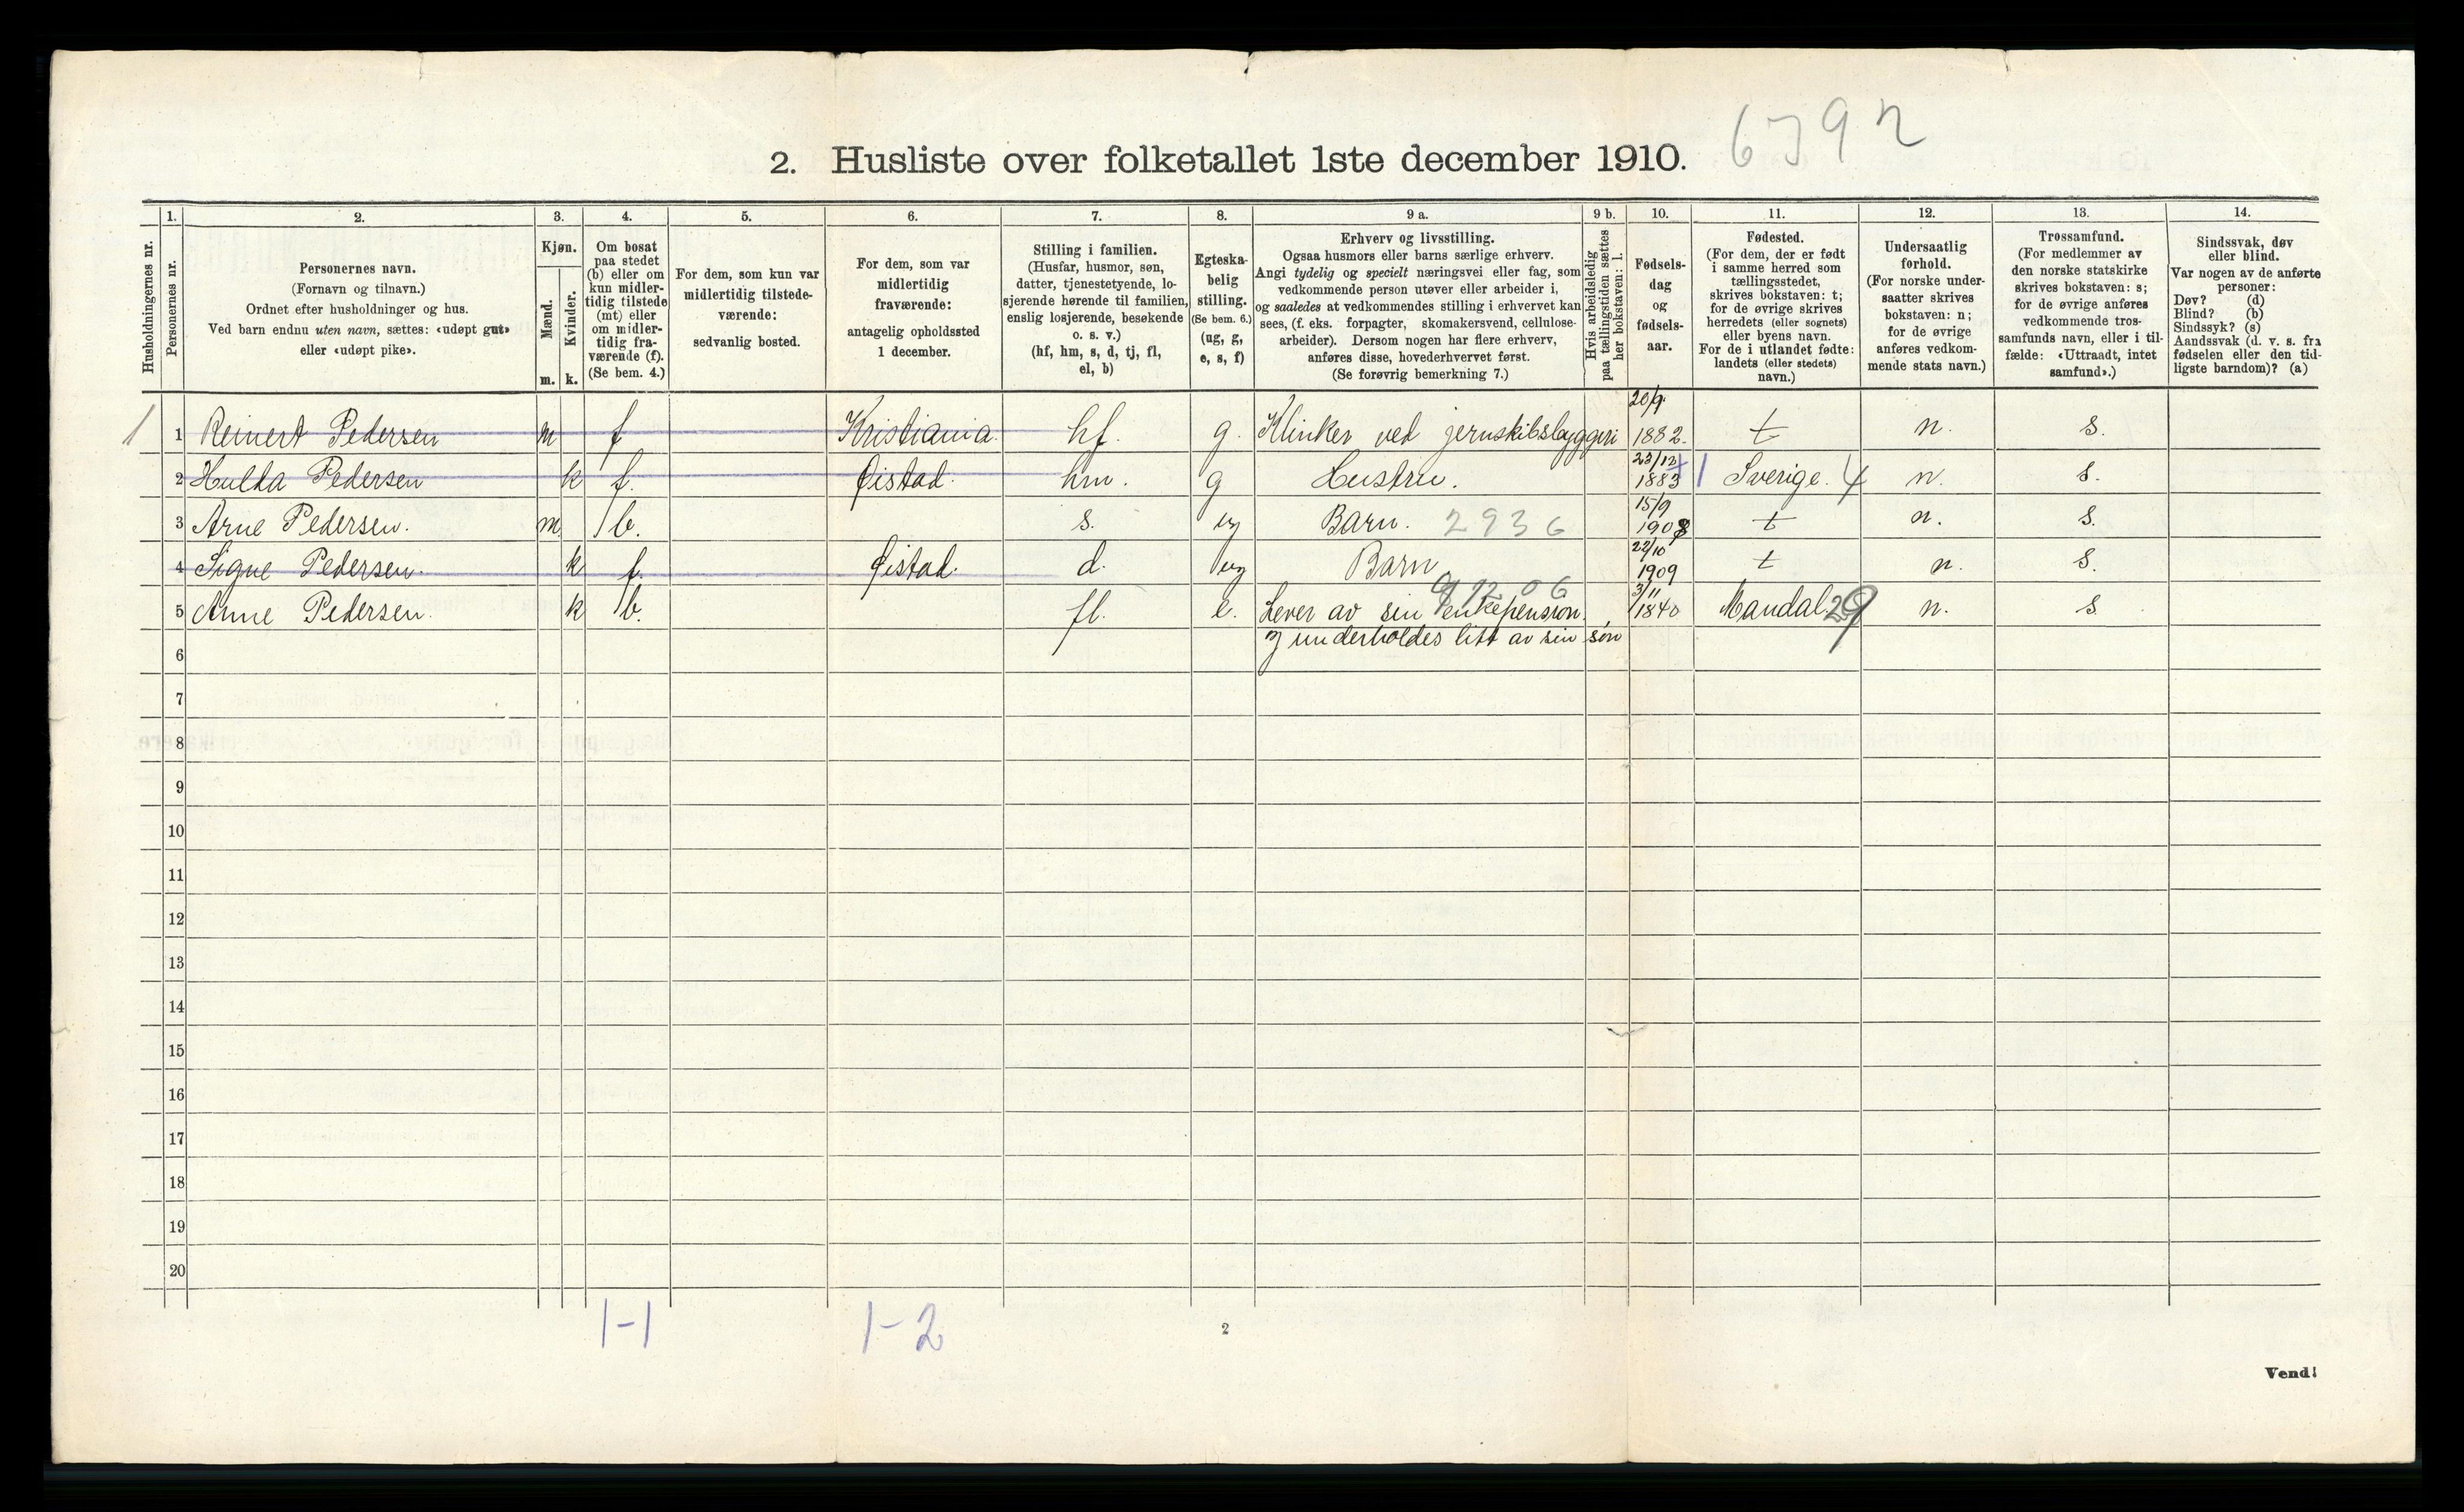 6392
2. Husliste over folketallet 1ste december 1910.
Husholdningernes nr.
1.
Personernes nr.
2.
Personernes navn.
(Fornavn og tilnavn.)
Ordnet efter husholdninger og hus.
Ved barn endnu uten navn, sættes: «udøpt gut»
eller «udøpt pike».
3.
Kjøn.
Mænd.
Kvinder.
m. k.
4.
Om bosat
paa stedet
(b) eller om
kun midler-
tidig tilstede
(mt) eller
om midler-
tidig fra-
værende (f).
(Se bem. 4.)
5.
For dem, som kun var
midlertidig tilstede-
værende:
sedvanlig bosted.
6.
For dem, som var
midlertidig
fraværende:
antagelig opholdssted
1 december.
7.
Stilling i familien.
(Husfar, husmor, søn,
datter, tjenestetyende, lo-
sjerende hørende til familien,
enslig losjerende, besøkende
o. s. v.)
(hf, hm, s, d, tj, fl,
el, b)
8.
Egteska-
belig
stilling.
(Se bem. 6.)
(ug, g,
e, s, f)
9 a.
Erhverv og livsstilling.
Ogsaa husmors eller barns særlige erhverv.
Angi tydelig og specielt næringsvei eller fag, som
vedkommende person utøver eller arbeider i,
og saaledes at vedkommendes stilling i erhvervet kan
sees, (f. eks. forpagter, skomakersvend, cellulose-
arbeider). Dersom nogen har flere erhverv,
anføres disse, hovederhvervet først.
(Se forøvrig bemerkning 7.)
9 b.
Hvis arbeidsledig
paa tællingstiden sættes
her bokstaven: l.
10.
Fødsels-
dag
og
fødsels-
aar.
11.
Fødested.
(For dem, der er født
i samme herred som
tællingsstedet,
skrives bokstaven: t;
for de øvrige skrives
herredets (eller sognets)
eller byens navn.
For de i utlandet fødte:
landets (eller stedets)
navn.)
12.
Undersaatlig
forhold.
(For norske under-
saatter skrives
bokstaven: n;
for de øvrige
anføres vedkom-
mende stats navn.)
13.
Trossamfund.
(For medlemmer av
den norske statskirke
skrives bokstaven: s;
for de øvrige anføres
vedkommende tros-
samfunds navn, eller i til-
fælde: «Uttraadt, intet
samfund».)
14.
Sindssvak, døv
eller blind.
Var nogen av de anførte
personer:
Døv? (d)
Blind? (b)
Sindssyk? (s)
Aandssvak (d. v. s. fra
fødselen eller den tid-
ligste barndom)? (a)
20/9
1 1 Reinert Pedersen m f Kristiania. hf. g. Klinker ved jernskibsbyggeri 1882. t n. s.
23/12
2 Hulda Pedersen k f. Øistad. hm. g Hustru. 1883 1 Sverige. 4 n. s.
15/9
3 Arne Pedersen. m 1 b. s. ug Barn. 2936 1908 t n. s.
22/10
4 Signe Pedersen. k f. Øistad. d. ug Barn 1909 t n. s.
3/11
5 Anne Pedersen. k 1 b. fl. e. Lever av sin enkepension. 1840 Mandal. 29 n. s.
6 og underholdes litt av sin søn
7
8
9
10
11
12
13
14
15
16
17
18
19
20
1-1 1-2
2
Vend!